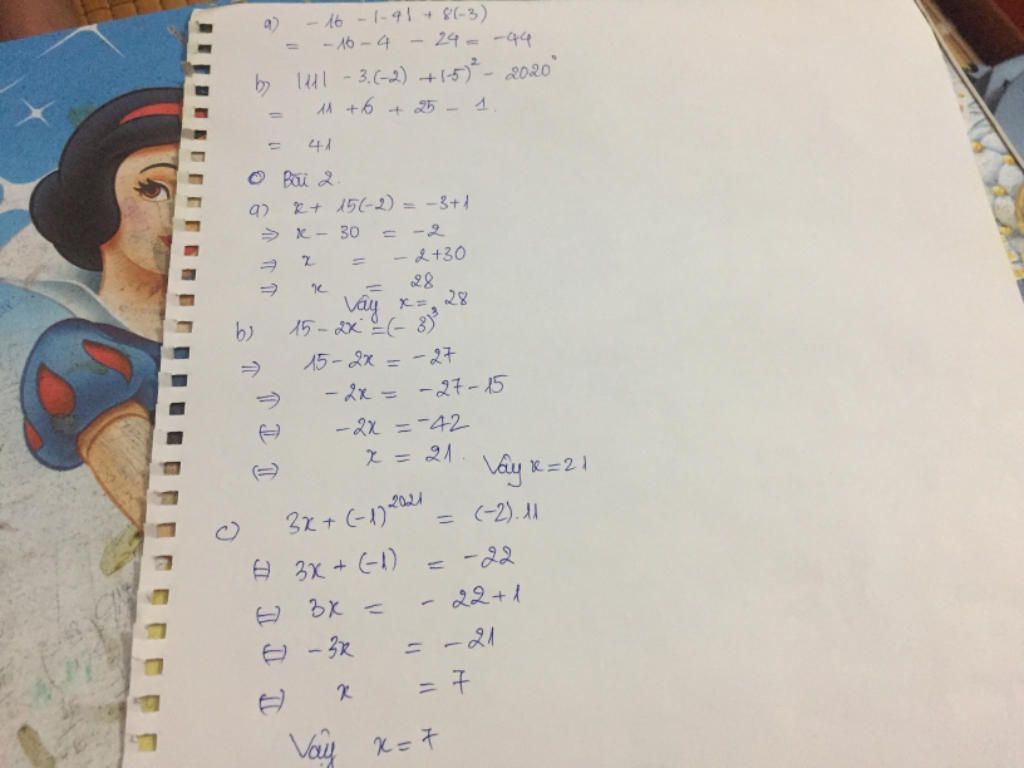 a) -16 - |-4| + 8(-3)
= -16 - 4 - 24 = -44
b) |11| - 3.(-2) + (-5)² - 2020⁰
= 11 + 6 + 25 - 1.
= 41
Bài 2.
a) x + 15(-2) = -3+1
⇒ x - 30 = -2
⇒ x = -2+30
⇒ x = 28
Vậy x = 28
b) 15 - 2x = (-3)³
⇒ 15 - 2x = -27
⇒ -2x = -27-15
⇔ -2x = -42
⇔ x = 21. Vậy x = 21
c) 3x + (-1)²⁰²¹ = (-2).11
⇔ 3x + (-1) = -22
⇔ 3x = -22+1
⇔ -3x = -21
⇔ x = 7
Vậy x = 7